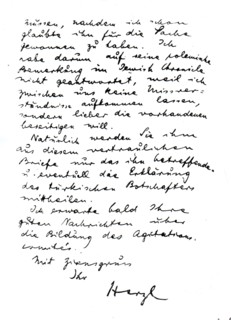 müssen, nachdem ich schon
glaubte ihn für die Sache
gewonnen zu haben. Ich
habe darum auf seine polemische
Bemerkung im Jewish Chronicle
nicht geantwortet, weil ich
zwischen uns keine Missver-
ständnisse aufkommen lassen,
sondern lieber die vorhandenen
beseitigen will.
Natürlich werden Sie ihm
aus diesem vertraulichen
Briefe nur das ihn betreffende
u. eventuell das Erklärung
des türkischen Botschafters
mittheilen.
Ich erwarte bald Ihre
guten Nachrichten über
die Bildung des Agitation.
comités.
Mit Zionsgruss
Ihr
Herzl